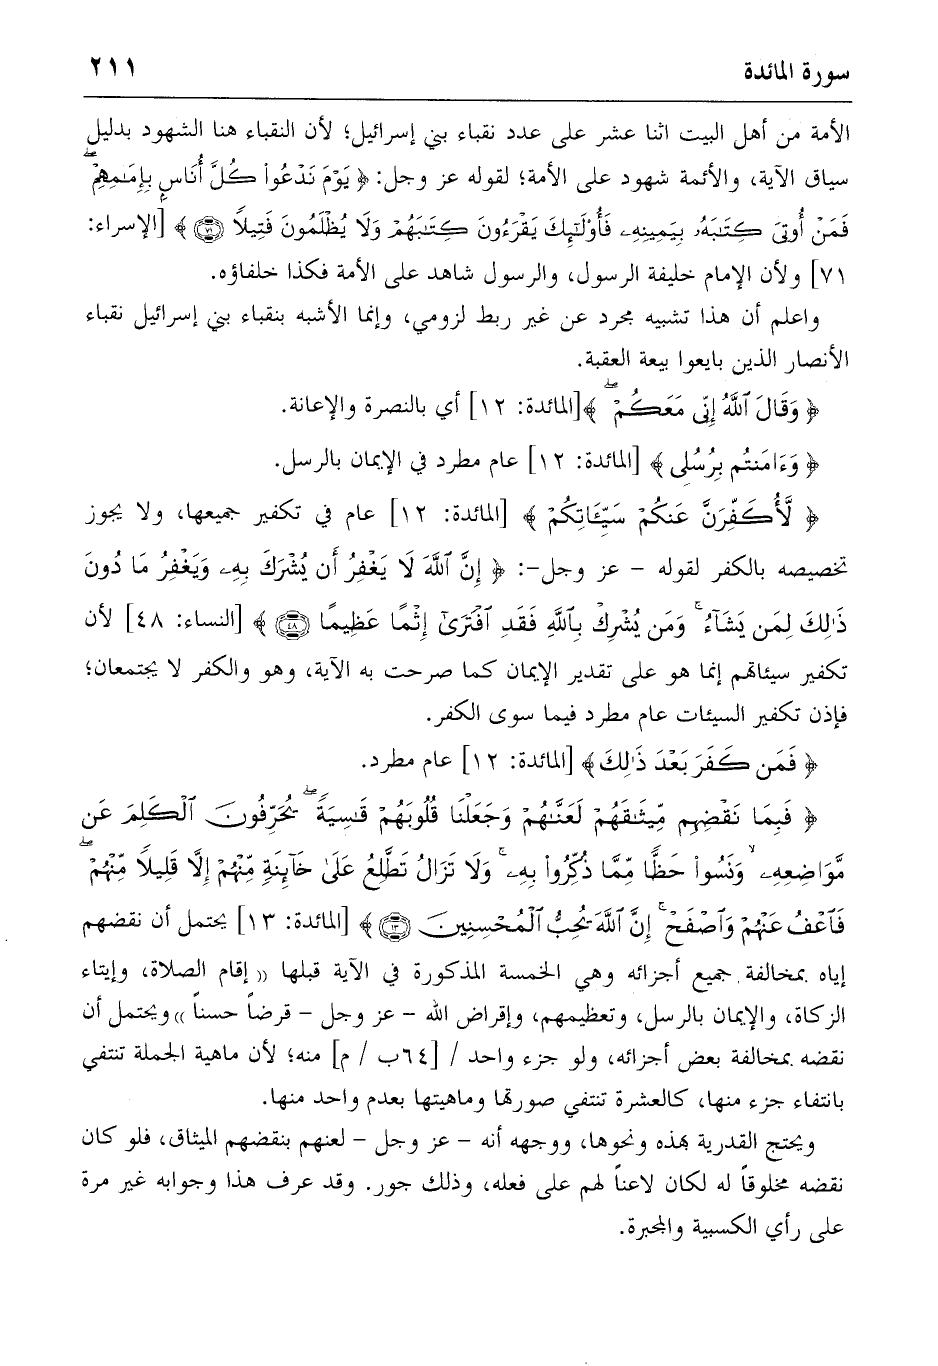 سورة المائدة ٢١١
الأمة من أهل البيت اثنا عشر على عدد نقباء بني إسرائيل؛ لأن النقباء هنا الشهود بدليل
سياق الآية، والأئمة شهود على الأمة؛ لقوله عز وجل: ﴿ يَوْمَ نَدْعُواْ كُلَّ أُنَاسٍۭ بِإِمَـٰمِهِمْ ۖ
فَمَنْ أُوتِىَ كِتَـٰبَهُۥ بِيَمِينِهِۦ فَأُوْلَـٰٓئِكَ يَقْرَءُونَ كِتَـٰبَهُمْ وَلَا يُظْلَمُونَ فَتِيلًا ﴿٧١﴾ ﴾ [الإسراء:
٧١] ولأن الإمام خليفة الرسول، والرسول شاهد على الأمة فكذا خلفاؤه.
واعلم أن هذا تشبيه مجرد عن غير ربط لزومي، وإنما الأشبه بنقباء بني إسرائيل نقباء
الأنصار الذين بايعوا بيعة العقبة.
﴿ وَقَالَ ٱللَّهُ إِنِّى مَعَكُمْ ۖ ﴾[المائدة: ١٢] أي بالنصرة والإعانة.
﴿ وَءَامَنتُم بِرُسُلِى ﴾ [المائدة: ١٢] عام مطرد في الإيمان بالرسل.
﴿ لَّأُكَفِّرَنَّ عَنكُمْ سَيِّـَٔاتِكُمْ ﴾ [المائدة: ١٢] عام في تكفير جميعها، ولا يجوز
تخصيصه بالكفر لقوله - عز وجل-: ﴿ إِنَّ ٱللَّهَ لَا يَغْفِرُ أَن يُشْرَكَ بِهِۦ وَيَغْفِرُ مَا دُونَ
ذَٰلِكَ لِمَن يَشَآءُ ۚ وَمَن يُشْرِكْ بِٱللَّهِ فَقَدِ ٱفْتَرَىٰٓ إِثْمًا عَظِيمًا ﴿٤٨﴾ ﴾ [النساء: ٤٨] لأن
تكفير سيئاتهم إنما هو على تقدير الإيمان كما صرحت به الآية، وهو والكفر لا يجتمعان؛
فإذن تكفير السيئات عام مطرد فيما سوى الكفر.
﴿ فَمَن كَفَرَ بَعْدَ ذَٰلِكَ ﴾ [المائدة: ١٢] عام مطرد.
﴿ فَبِمَا نَقْضِهِم مِّيثَـٰقَهُمْ لَعَنَّـٰهُمْ وَجَعَلْنَا قُلُوبَهُمْ قَـٰسِيَةً ۖ يُحَرِّفُونَ ٱلْكَلِمَ عَن
مَّوَاضِعِهِۦ ۙ وَنَسُواْ حَظًّا مِّمَّا ذُكِّرُواْ بِهِۦ ۚ وَلَا تَزَالُ تَطَّلِعُ عَلَىٰ خَآئِنَةٍ مِّنْهُمْ إِلَّا قَلِيلًا مِّنْهُمْ ۖ
فَٱعْفُ عَنْهُمْ وَٱصْفَحْ ۚ إِنَّ ٱللَّهَ يُحِبُّ ٱلْمُحْسِنِينَ ﴿١٣﴾ ﴾ [المائدة: ١٣] يحتمل أن نقضهم
إياه بمخالفة جميع أجزائه وهي الخمسة المذكورة في الآية قبلها «إقام الصلاة، وإيتاء
الزكاة، والإيمان بالرسل، وتعظيمهم، وإقراض الله - عز وجل - قرضاً حسناً» ويحتمل أن
نقضه بمخالفة بعض أجزائه، ولو جزء واحد / [٦٤ب / م] منه؛ لأن ماهية الجملة تنتفي
بانتفاء جزء منها، كالعشرة تنتفي صورتها وماهيتها بعدم واحد منها.
ويحتج القدرية بهذه ونحوها، ووجهه أنه - عز وجل - لعنهم بنقضهم الميثاق، فلو كان
نقضه مخلوقاً له لكان لاعناً لهم على فعله، وذلك جور. وقد عرف هذا وجوابه غير مرة
على رأي الكسبية والمجبرة.